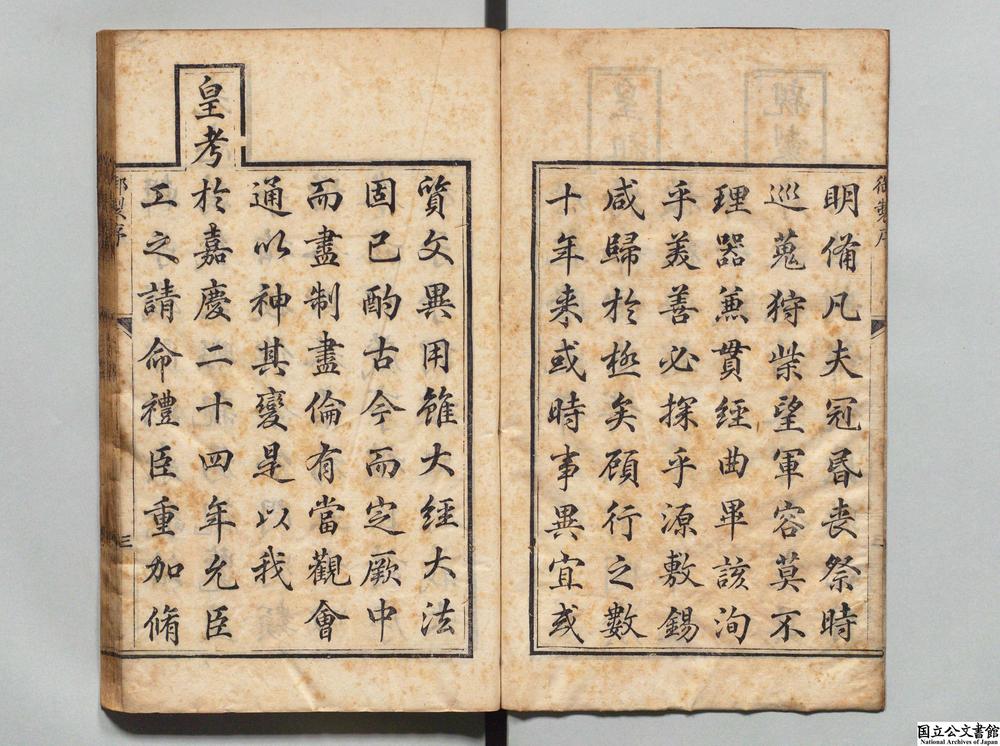 御製序
明俻凡夫冠昏喪祭時
巡蒐狩柴望軍容莫不
理器兼貫經曲畢該洵
乎美善必探乎源敷錫
咸歸於極矣顧行之數
十年来或時事異宜或
質文異用雖大經大法
固已酌古今而定厥中
而盡制盡倫有當觀會
通以神其變是以我
皇考於嘉慶二十四年允臣
工之請命禮臣重加脩
御製序
三
国立公文書館
National Archives of Japan